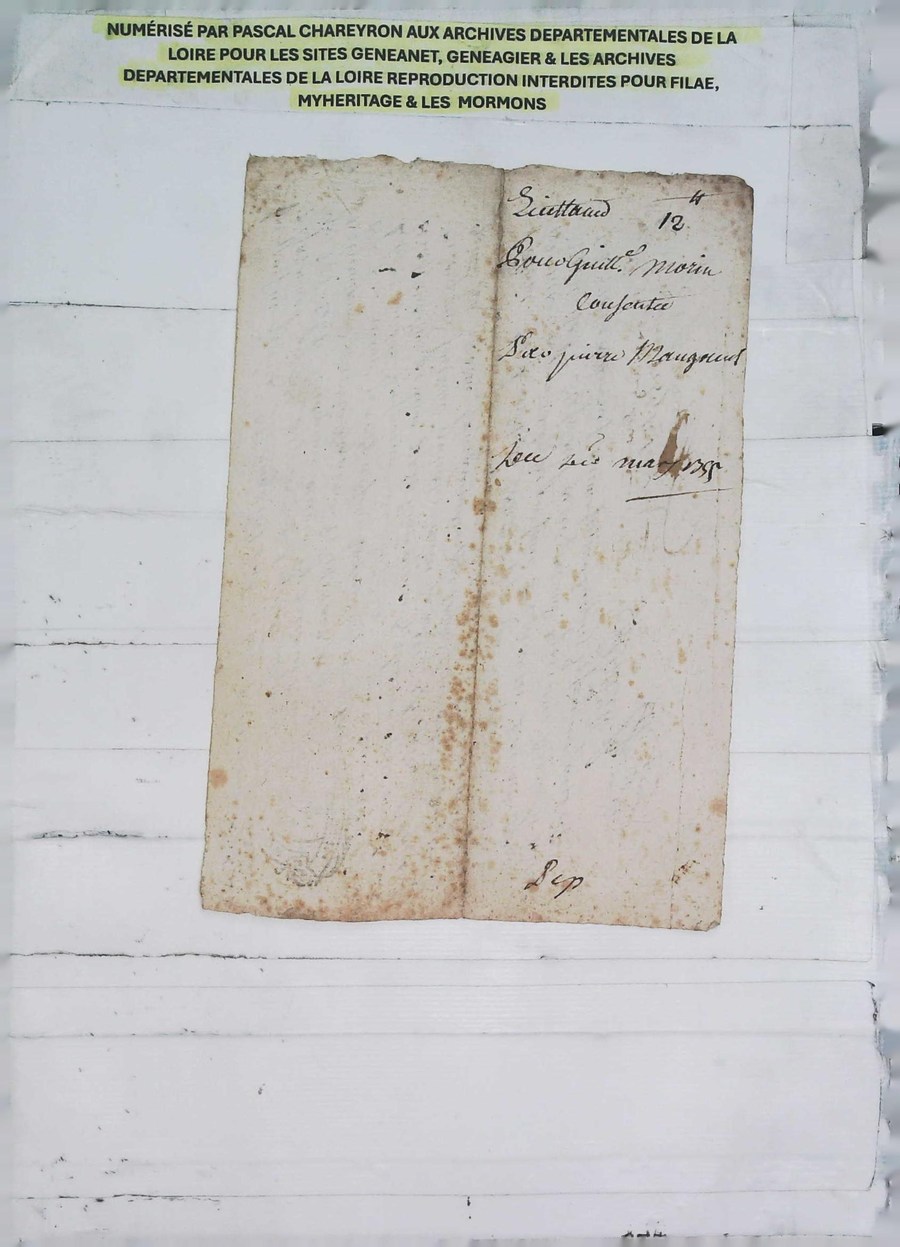 NUMÉRISÉ PAR PASCAL CHAREYRON AUX ARCHIVES DEPARTEMENTALES DE LA
LOIRE POUR LES SITES GENEANET, GENEAGIER & LES ARCHIVES
DEPARTEMENTALES DE LA LOIRE REPRODUCTION INTERDITES POUR FILAE,
MYHERITAGE & LES MORMONS
Quittance 12
Pour Guill.e Morin
Consentie
Par pierre
may